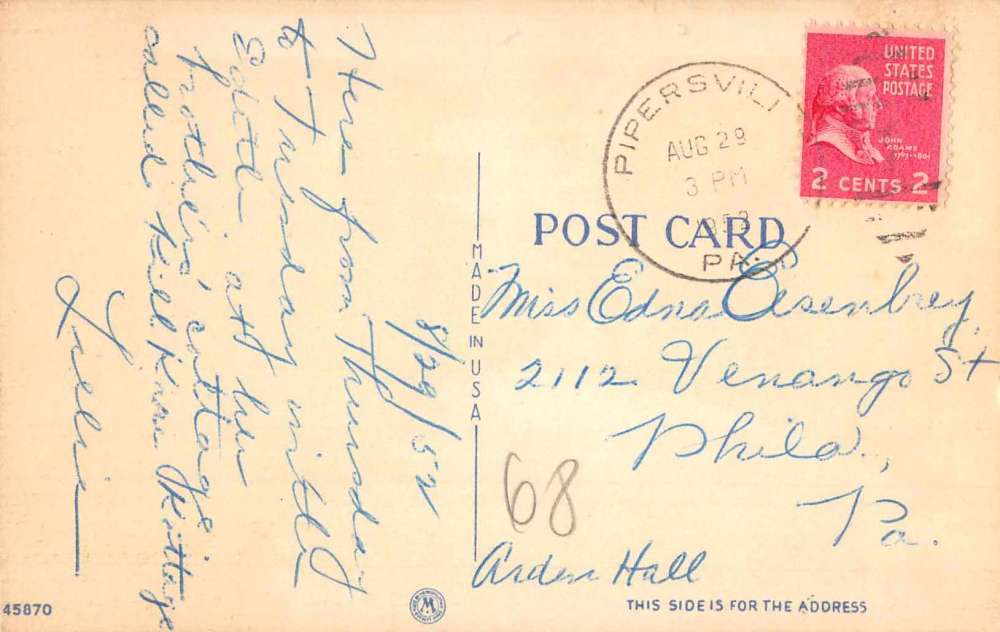 8/29/52
Here from Thursday
to Tuesday with
Edith at her
brother's cottage
called Kill Kare Kottage
UNITED
STATES
POSTAGE
JOHN
ADAMS
1797-1801
2 CENTS 2
PIPERSVILL
AUG 29
3 PM
PA.
POST CARD
MADE IN USA
Miss Edna Eisenbrey
2112 Venango St
Phila,
Pa.
68
Arden Hall
45870
THIS SIDE IS FOR THE ADDRESS